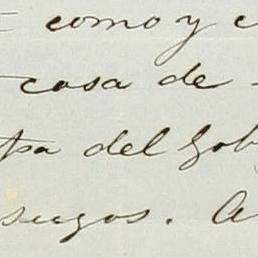 como y
casa de
del Gob
sugos. A